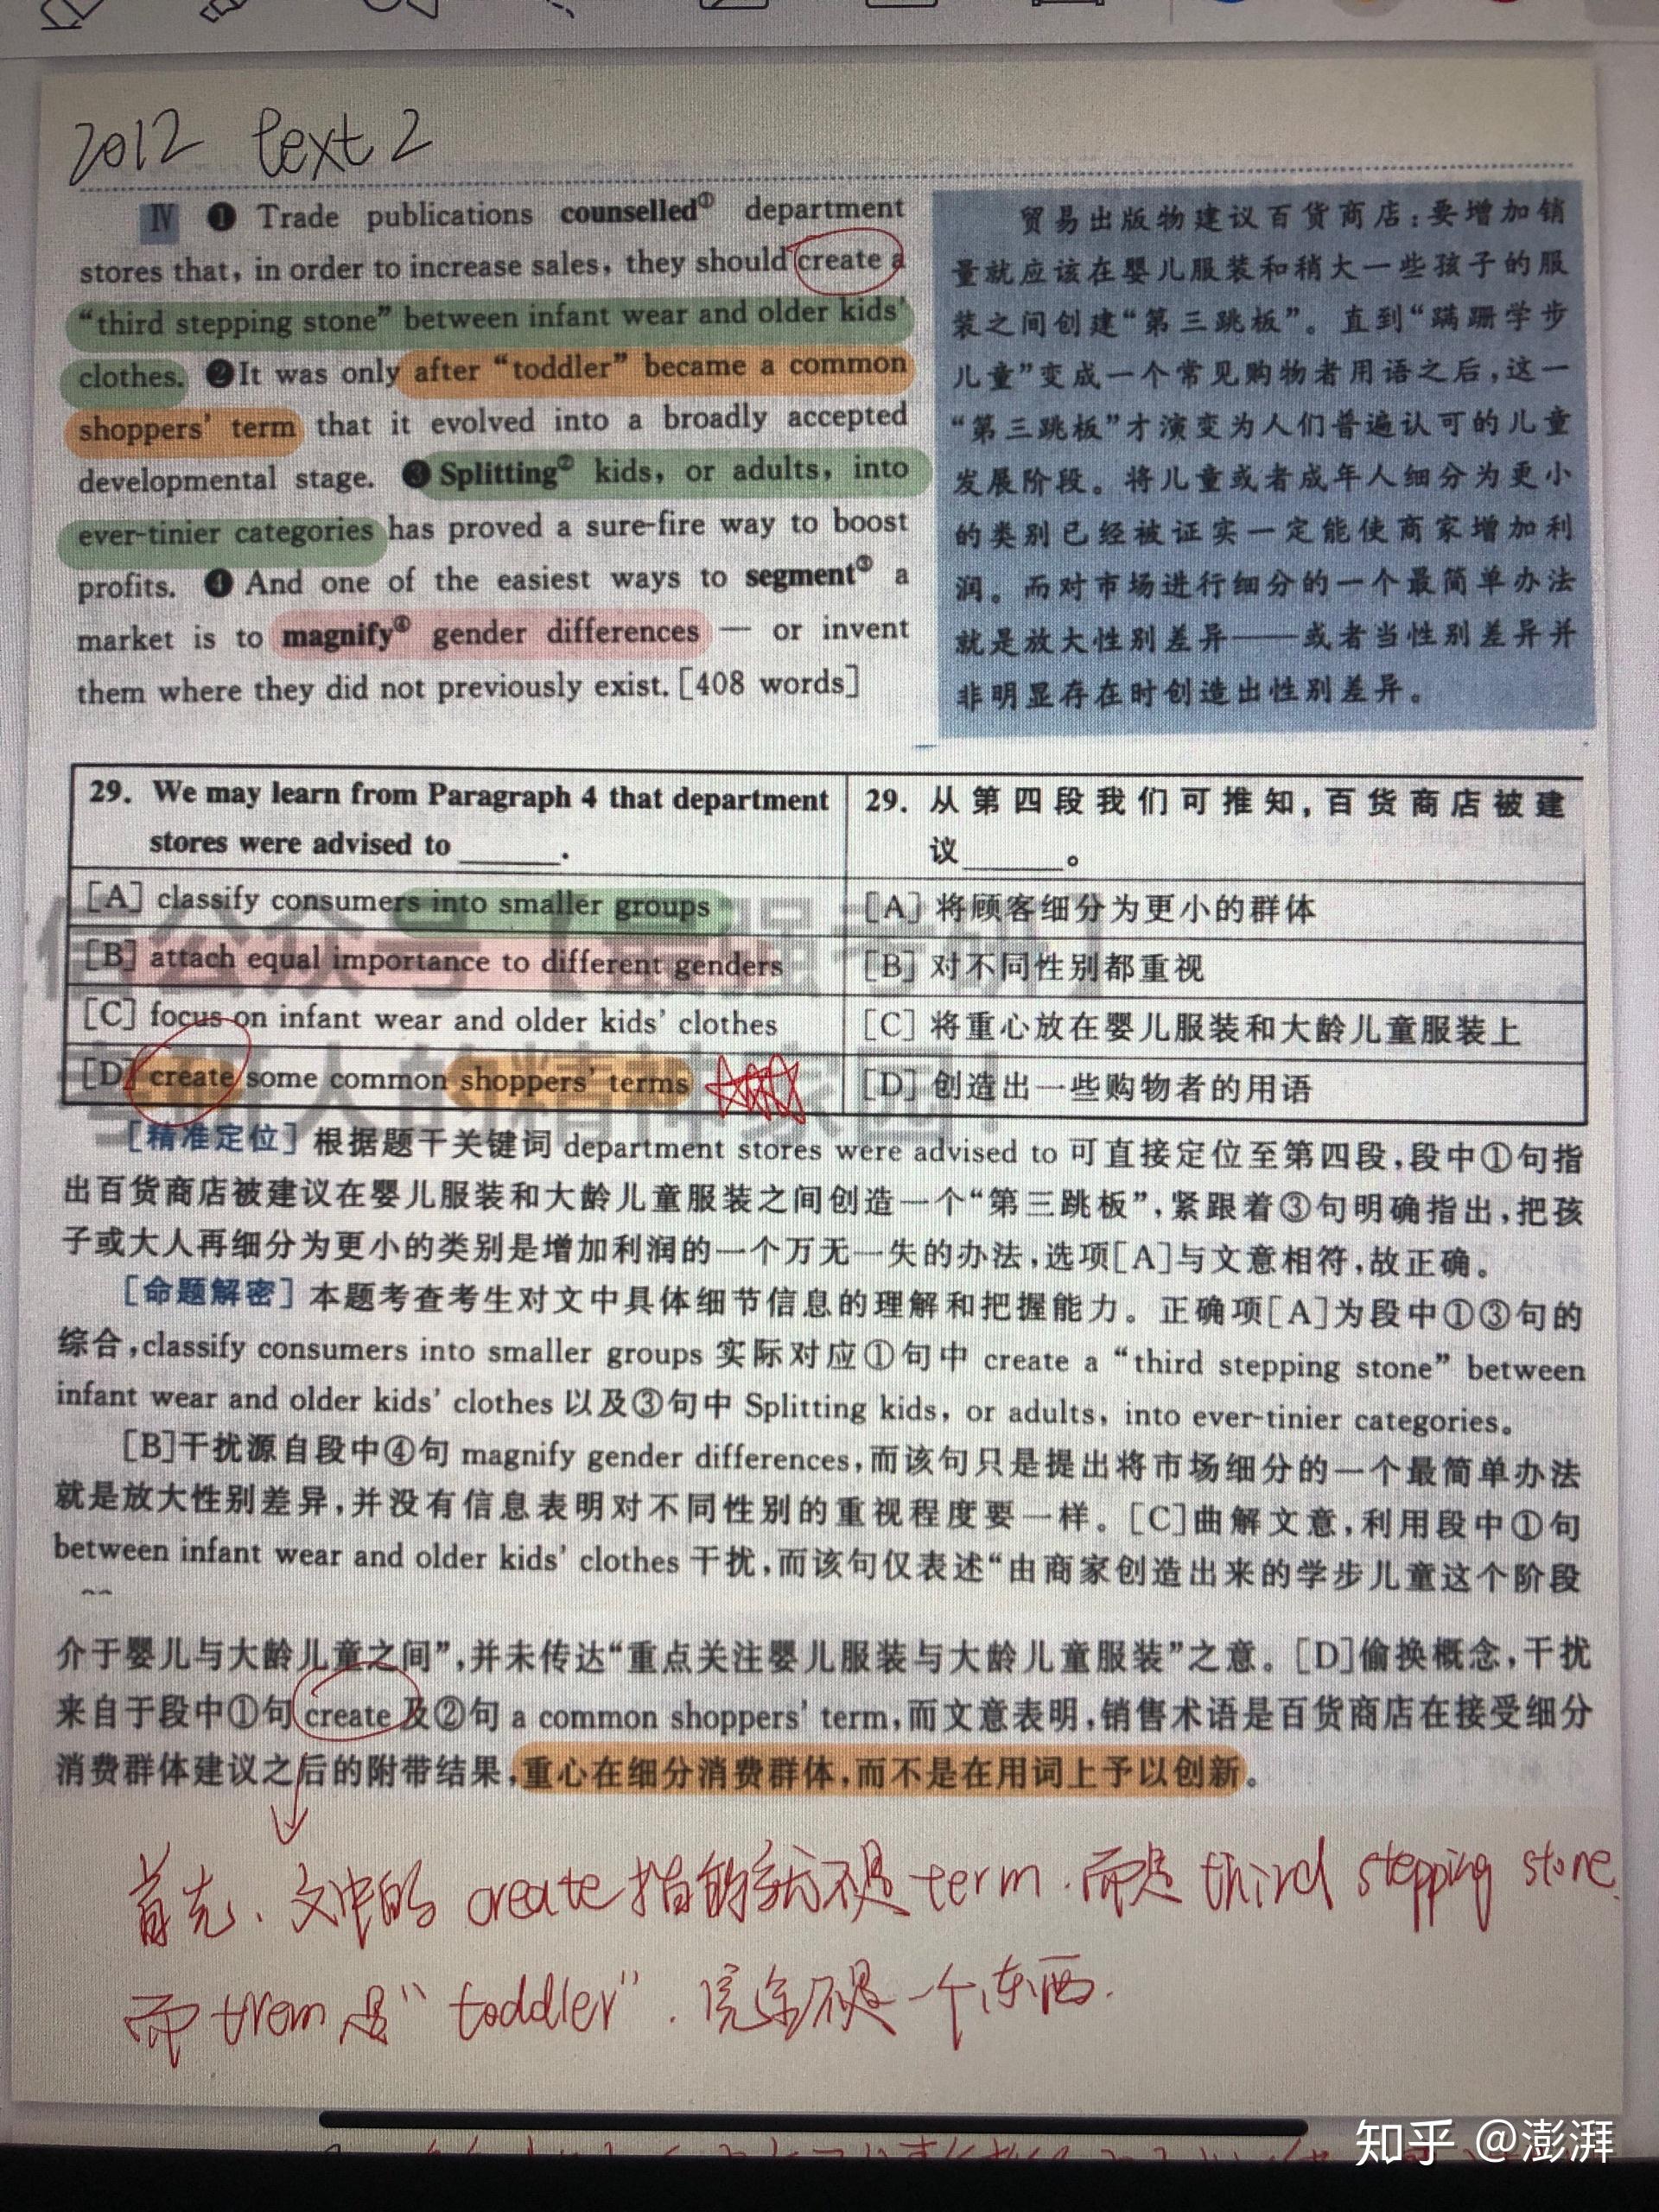 2012 text 2
IV ❶ Trade publications counselled① department
stores that, in order to increase sales, they should create a
“third stepping stone” between infant wear and older kids’
clothes. ❷It was only after “toddler” became a common
shoppers’ term that it evolved into a broadly accepted
developmental stage. ❸Splitting② kids, or adults, into
ever-tinier categories has proved a sure-fire way to boost
profits. ❹ And one of the easiest ways to segment③ a
market is to magnify④ gender differences — or invent
them where they did not previously exist.[408 words]
贸易出版物建议百货商店:要增加销
量就应该在婴儿服装和稍大一些孩子的服
装之间创建“第三跳板”。直到“蹒跚学步
儿童”变成一个常见购物者用语之后,这一
“第三跳板”才演变为人们普遍认可的儿童
发展阶段。将儿童或者成年人细分为更小
的类别已经被证实一定能使商家增加利
润。而对市场进行细分的一个最简单办法
就是放大性别差异——或者当性别差异并
非明显存在时创造出性别差异。
29. We may learn from Paragraph 4 that department
stores were advised to ______.
29. 从第四段我们可推知,百货商店被建
议______。
[A] classify consumers into smaller groups
[A] 将顾客细分为更小的群体
[B] attach equal importance to different genders
[B] 对不同性别都重视
[C] focus on infant wear and older kids’ clothes
[C] 将重心放在婴儿服装和大龄儿童服装上
[D] create some common shoppers’ terms
[D] 创造出一些购物者的用语
信公众号【最强考研】
考研人的精神家园!
[精准定位] 根据题干关键词 department stores were advised to 可直接定位至第四段,段中①句指
出百货商店被建议在婴儿服装和大龄儿童服装之间创造一个“第三跳板”,紧跟着③句明确指出,把孩
子或大人再细分为更小的类别是增加利润的一个万无一失的办法,选项[A]与文意相符,故正确。
[命题解密] 本题考查考生对文中具体细节信息的理解和把握能力。正确项[A]为段中①③句的
综合,classify consumers into smaller groups 实际对应①句中 create a “third stepping stone” between
infant wear and older kids’ clothes 以及③句中 Splitting kids, or adults, into ever-tinier categories。
[B]干扰源自段中④句 magnify gender differences,而该句只是提出将市场细分的一个最简单办法
就是放大性别差异,并没有信息表明对不同性别的重视程度要一样。[C]曲解文意,利用段中①句
between infant wear and older kids’ clothes 干扰,而该句仅表述“由商家创造出来的学步儿童这个阶段
介于婴儿与大龄儿童之间”,并未传达“重点关注婴儿服装与大龄儿童服装”之意。[D]偷换概念,干扰
来自于段中①句 create 及②句 a common shoppers’ term,而文意表明,销售术语是百货商店在接受细分
消费群体建议之后的附带结果,重心在细分消费群体,而不是在用词上予以创新。
首先、文中的 create 指的就不是 term. 而是 third stepping stone.
而 trem 是“toddler”. 完全不是一个东西.
知乎 @澎湃